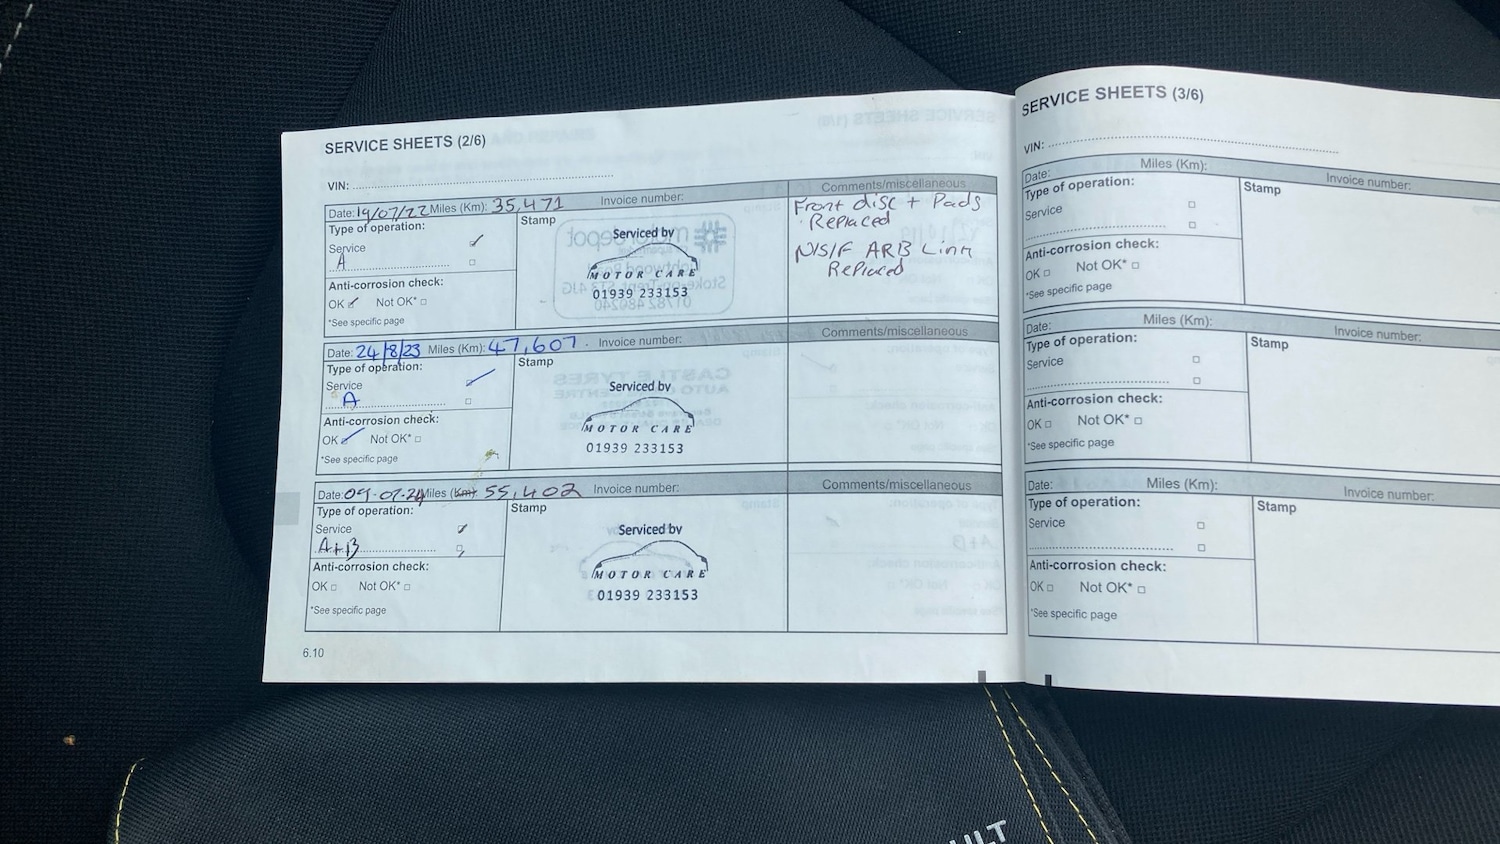 SERVICE SHEETS (2/6)
VIN:
Date: 19/07/22 Miles (Km): 35,471 Invoice number: Comments/miscellaneous
Type of operation:
Service
A
Anti-corrosion check:
OK Not OK*
*See specific page
Stamp
Serviced by
MOTOR CARE
01939 233153
Front disc + Pads
Replaced
N/S/F ARB Link
Replaced
Date: 24/8/23 Miles (Km): 47,607. Invoice number: Comments/miscellaneous
Type of operation:
Service
A
Anti-corrosion check:
OK Not OK*
*See specific page
Stamp
Serviced by
MOTOR CARE
01939 233153
Date: 09-07-24 Miles (Km): 55,402 Invoice number: Comments/miscellaneous
Type of operation:
Service
A+B
Anti-corrosion check:
OK Not OK*
*See specific page
Stamp
Serviced by
MOTOR CARE
01939 233153
6.10
SERVICE SHEETS (3/6)
VIN:
Date: Miles (Km): Invoice number:
Type of operation:
Service
Anti-corrosion check:
OK Not OK*
*See specific page
Stamp
Date: Miles (Km): Invoice number:
Type of operation:
Service
Anti-corrosion check:
OK Not OK*
*See specific page
Stamp
Date: Miles (Km): Invoice number:
Type of operation:
Service
Anti-corrosion check:
OK Not OK*
*See specific page
Stamp